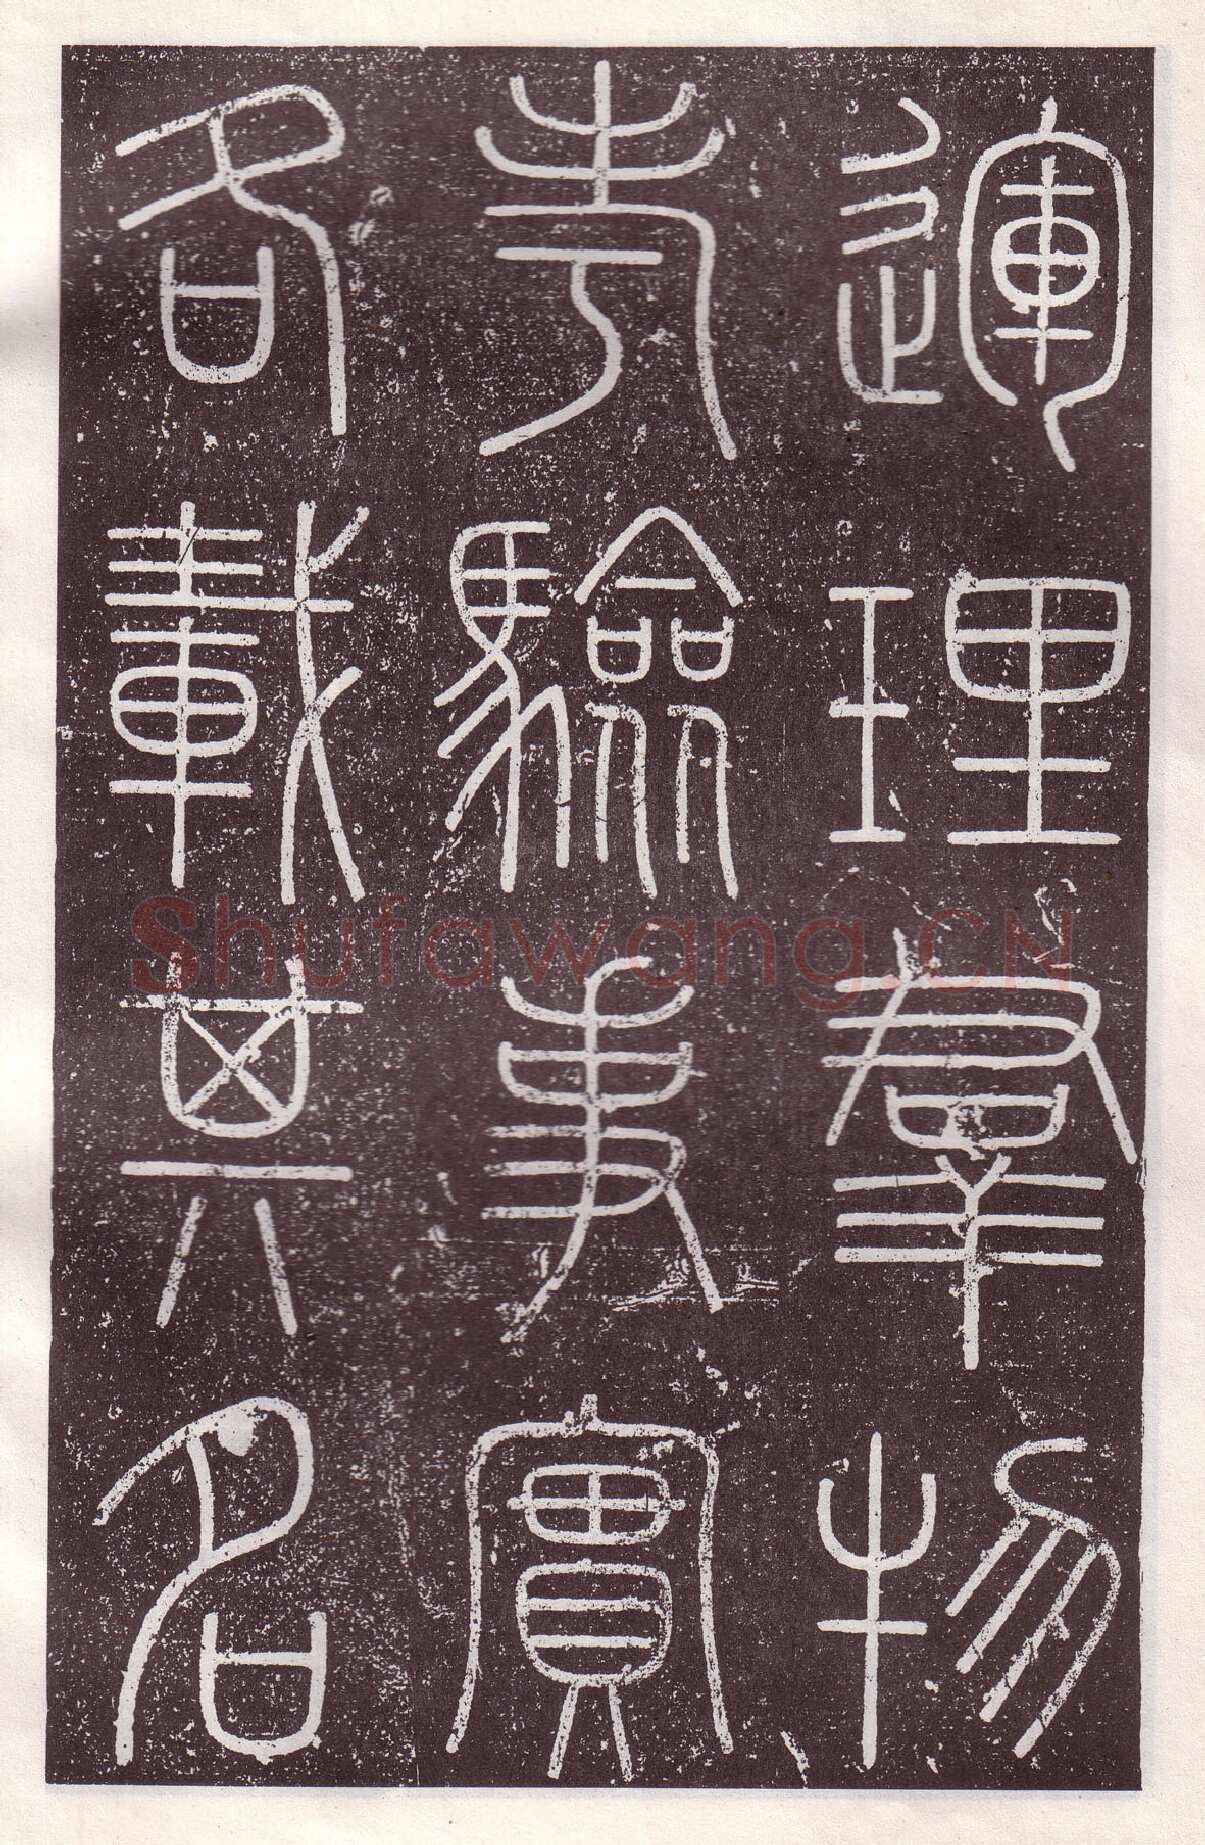 運理羣物
考驗事實
各載其名
Shufawang.CN